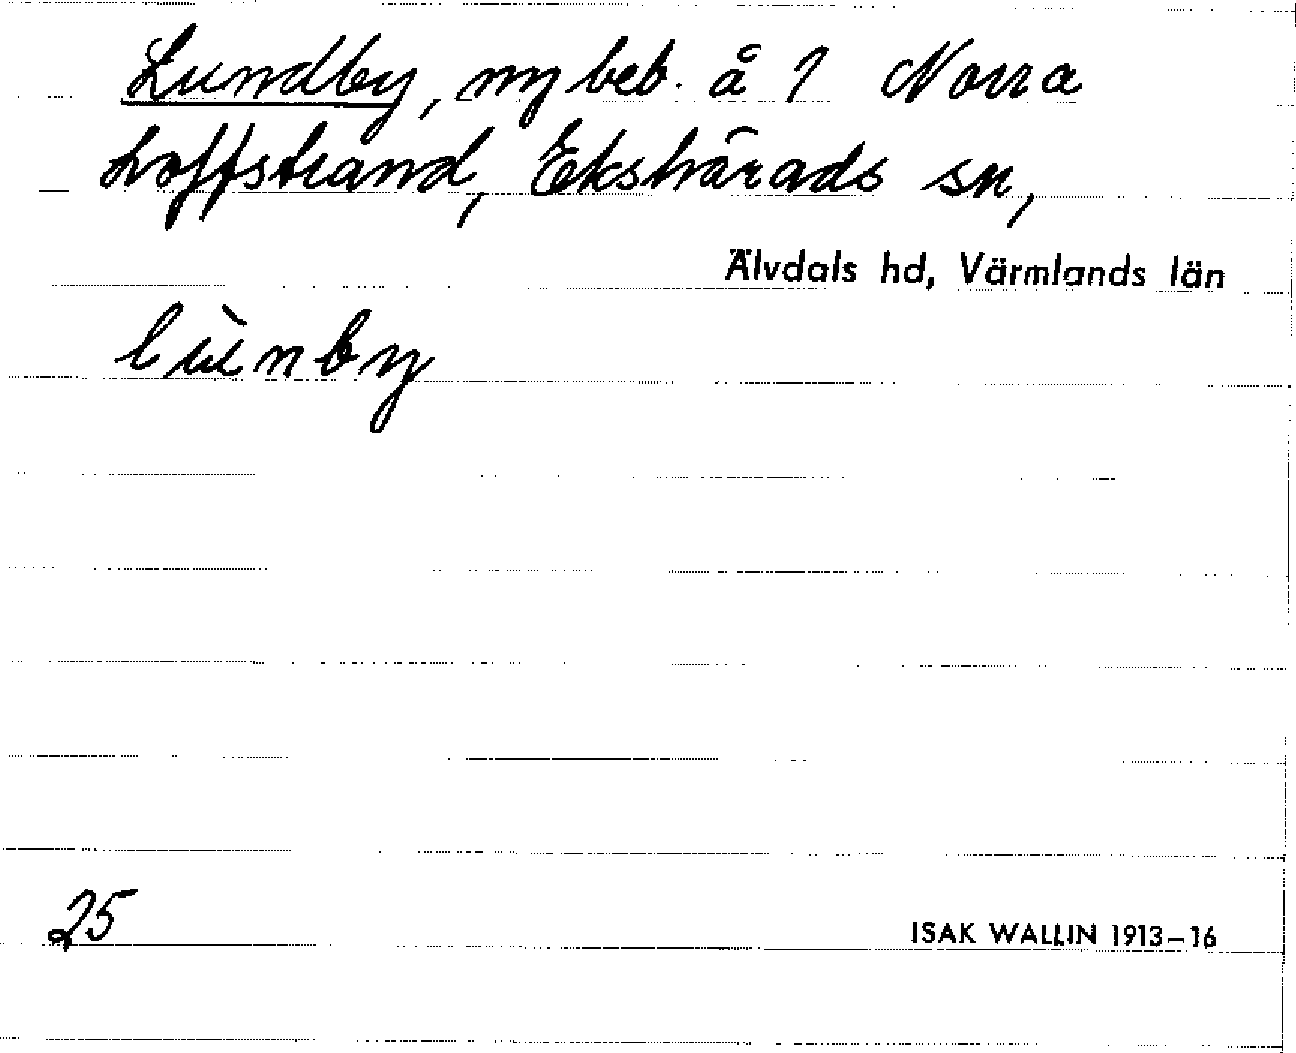 Lundby, nybeb. å 1 Norra
Loffstrand, Ekshärads sn,
Älvdals hd, Värmlands län
lùnby
25
ISAK WALLIN 1913–16